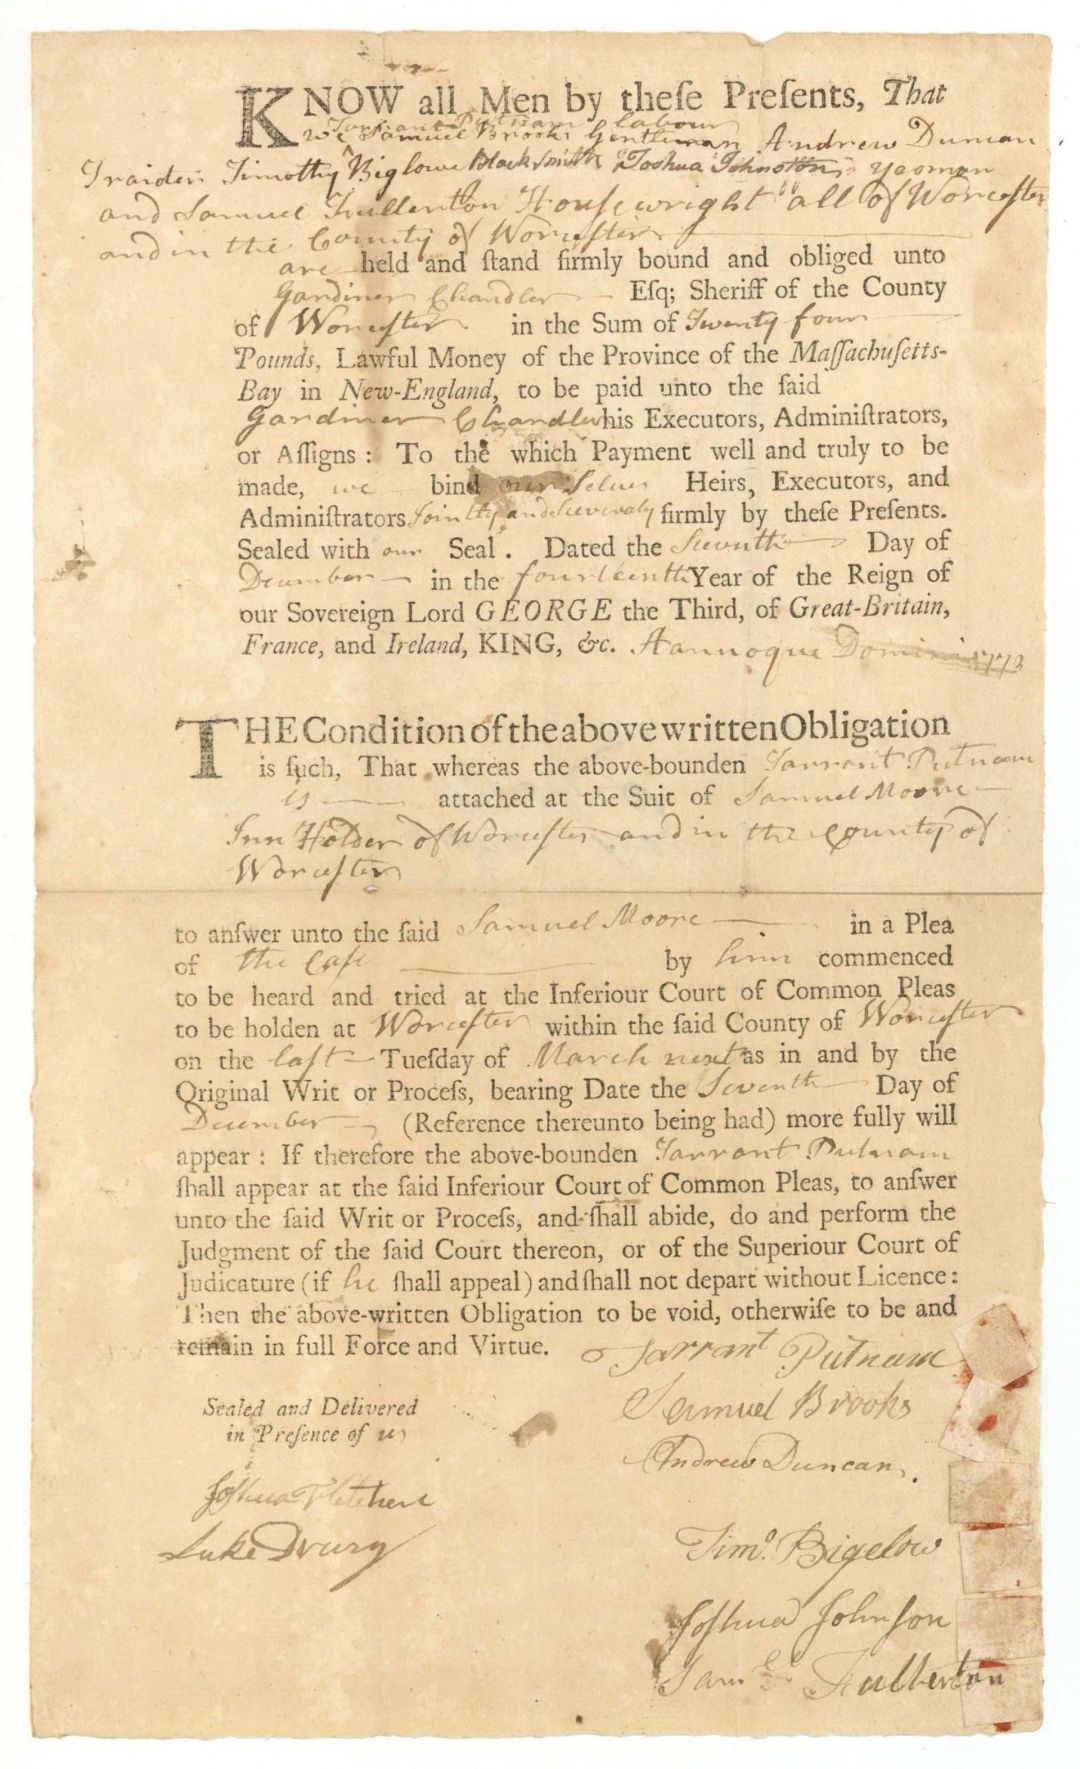 KNOW all Men by theſe Preſents, That
Tarrant Putnam labour
we Samuel Brooks Gentleman Andrew Duncan
Traider Timothy Biglowe Black Smith Joshua Johnston yeoman
and Samuel Fullerton House wright all of Worcester
and in the County of Worcester
are held and ſtand firmly bound and obliged unto
Gardiner Chandler Eſq; Sheriff of the County
of Worcester in the Sum of Twenty four
Pounds, Lawful Money of the Province of the Maſſachuſetts-
Bay in New-England, to be paid unto the ſaid
Gardiner Chandler his Executors, Adminiſtrators,
or Aſſigns : To the which Payment well and truly to be
made, we bind our Selves Heirs, Executors, and
Adminiſtrators Jointly and Severaly firmly by theſe Preſents.
Sealed with our Seal . Dated the Seventh Day of
December in the fourteenth Year of the Reign of
our Sovereign Lord GEORGE the Third, of Great-Britain,
France, and Ireland, KING, &c. Aannoque Domini 1773
THE Condition of the above written Obligation
is ſuch, That whereas the above-bounden Tarrant Putnam
is attached at the Suit of Samuel Moore
Inn Holder of Worcester and in the County of
Worcester
to anſwer unto the ſaid Samuel Moore in a Plea
of the Caſe by him commenced
to be heard and tried at the Inferiour Court of Common Pleas
to be holden at Worcester within the ſaid County of Worcester
on the laſt Tueſday of March next as in and by the
Original Writ or Proceſs, bearing Date the Seventh Day of
December (Reference thereunto being had) more fully will
appear : If therefore the above-bounden Tarrant Putnam
ſhall appear at the ſaid Inferiour Court of Common Pleas, to anſwer
unto the ſaid Writ or Proceſs, and ſhall abide, do and perform the
Judgment of the ſaid Court thereon, or of the Superiour Court of
Judicature (if he ſhall appeal) and ſhall not depart without Licence :
Then the above-written Obligation to be void, otherwiſe to be and
remain in full Force and Virtue.
Tarrant Putnam
Samuel Brooks
Andrew Duncan.
Timo. Bigelow
Joſhua Johnſon
Saml Fullerton
Sealed and Delivered
in Preſence of us
Joſhua Fletcher
Luke Drury